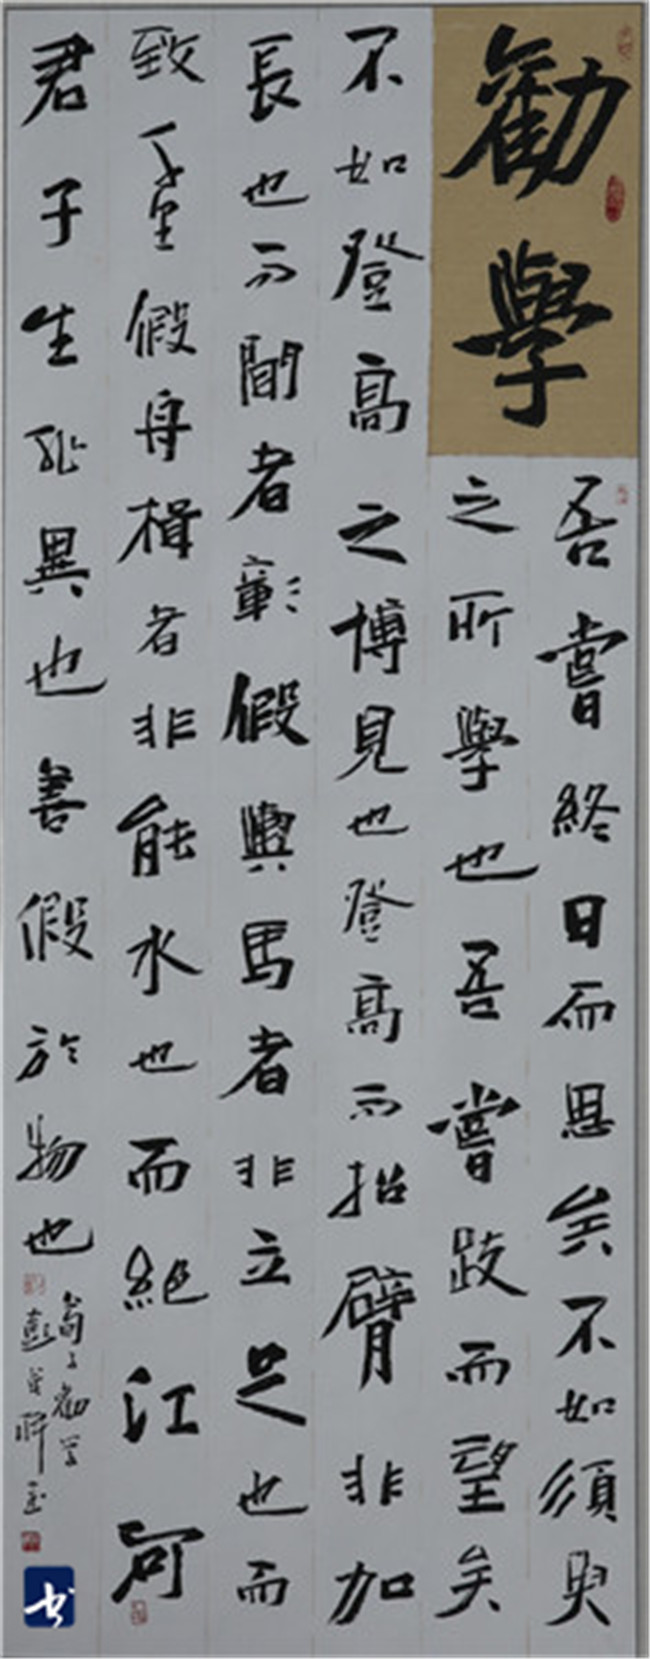 勸學
吾嘗終日而思矣不如須臾
之所學也吾嘗跂而望矣
不如登高之博見也登高而招臂非加
長也而間者彰假輿馬者非立足也而
致千里假舟楫者非能水也而絕江河
君子生非異也善假於物也
荀子勸學